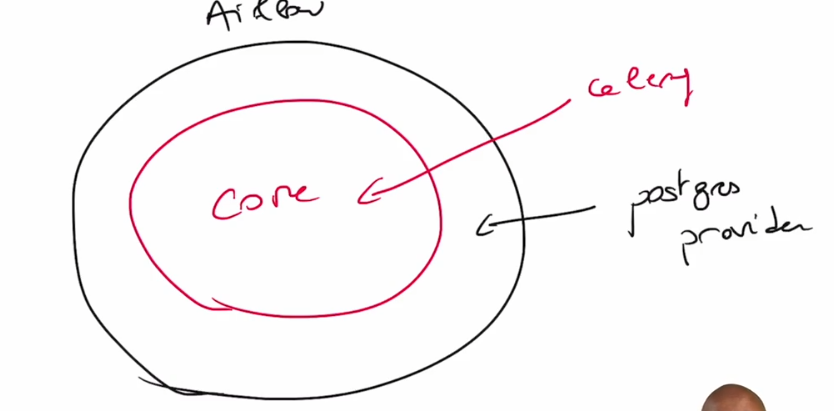 Airflow
celery
core
postgres
provider